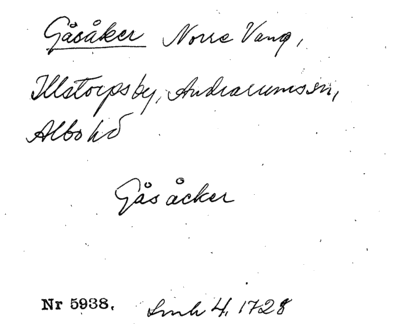 Gåsåker Norre Vang,
Illstorpsby, Andrarumssn,
Albo hd
Gås åcker
Nr 5938. Lmh 4, 1728